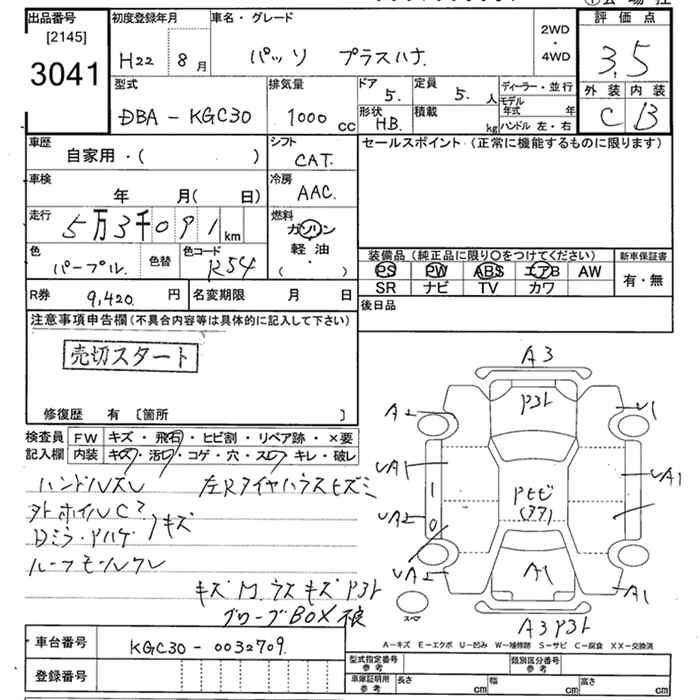 出品番号 初度登録年月 車名・グレード 評価点
[2145]
3041
H22 8月 パッソ プラスハナ 2WD・4WD 3.5
型式 排気量 ドア 定員 ディーラー・並行 外装 内装
DBA - KGC30 1000cc 5. 5.人 モデル年式 年 C B
形状 積載
H.B. kg ハンドル 左・右
車歴 シフト セールスポイント (正常に機能するものに限ります)
自家用・( ) CAT.
車検 冷房
年 月( 日) AAC.
走行 燃料
5万3千091km ガソリン
軽油
・( )
色 色替 色コード 装備品 (純正品に限り〇をつけてください) 新車保証書
パープル. R54 PS PW ABS エアB AW 有・無
SR ナビ TV カワ
R券 9,420円 名変期限 月 日 後日品
注意事項申告欄(不具合内容等は具体的に記入して下さい)
売切スタート
修復歴 有 〔箇所 〕
検査員 FW キズ・飛石・ヒビ割・リペア跡・×要
記入欄 内装 キズ・汚レ・コゲ・穴・スレ・キレ・破レ
ハンドルズレ 左Rタイヤハウスヒズミ
ルーフモールワレ
グローブBOX
A3
A2 P31 U1
UA1 UA1
UA2
UA2 A1 A1
スペア
A3 P31
A-キズ E-エクボ U-凹み W-補修跡 S-サビ C-腐食 XX-交換済
車台番号 KGC30 - 0032709.
登録番号
型式指定番号 参考 類別区分番号 参考
車庫証明用 参考 長さ cm 幅 cm 高さ cm